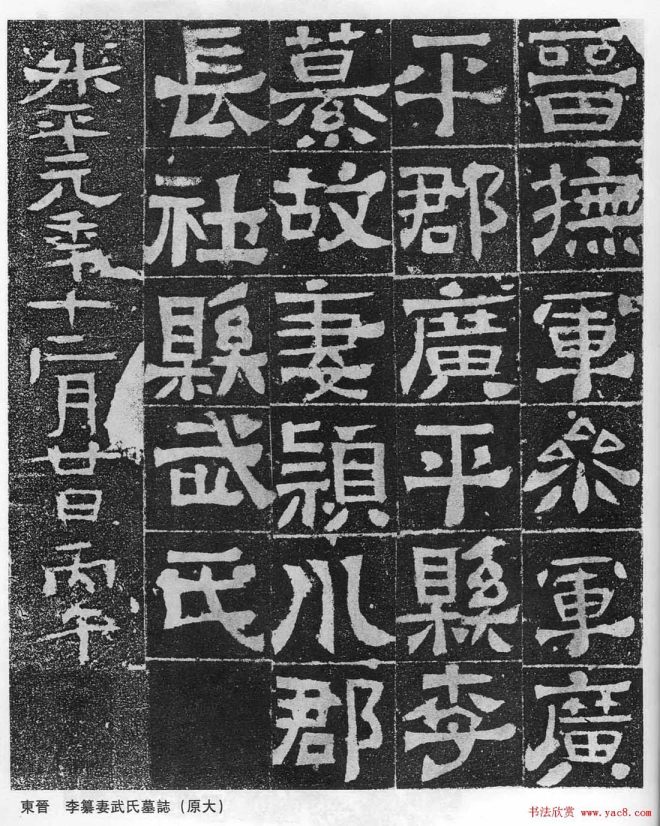 晉撫軍參軍廣
平郡廣平縣李
纂故妻潁川郡
長社縣武氏
升平元年十二月廿日丙午
東晉 李纂妻武氏墓誌（原大）
书法欣赏 www.yac8.com